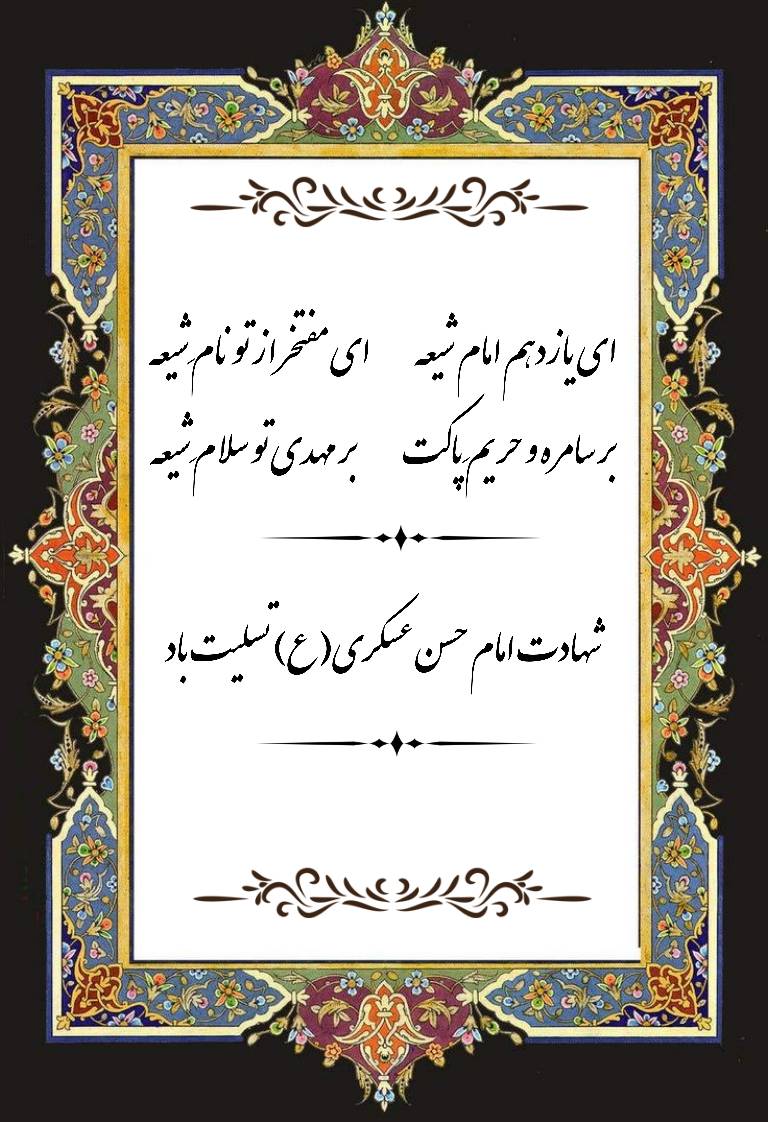 ای یازدهم امام شیعه ای مفتخر از تو نام شیعه
بر سامره و حریم پاکت بر مهدی تو سلام شیعه
شهادت امام حسن عسکری (ع) تسلیت باد